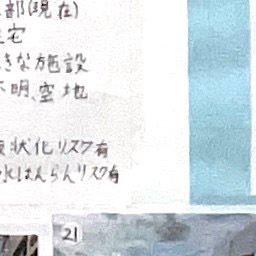 部(現在)
宅
きな施設
不明、空地
状化リスク有
水はんらんリスク有
21